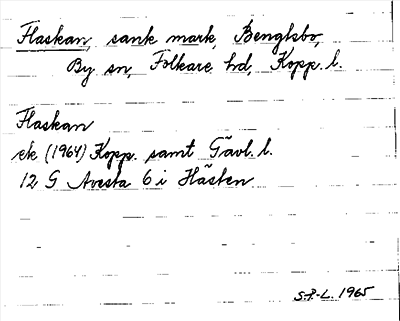 Flaskan, sank mark, Bengtsbo,
By sn, Folkare hd, Kopp. l.
Flaskan
ek (1964) Kopp. samt Gävl. l.
12 G Avesta 6 i Hästen
S.P-L. 1965